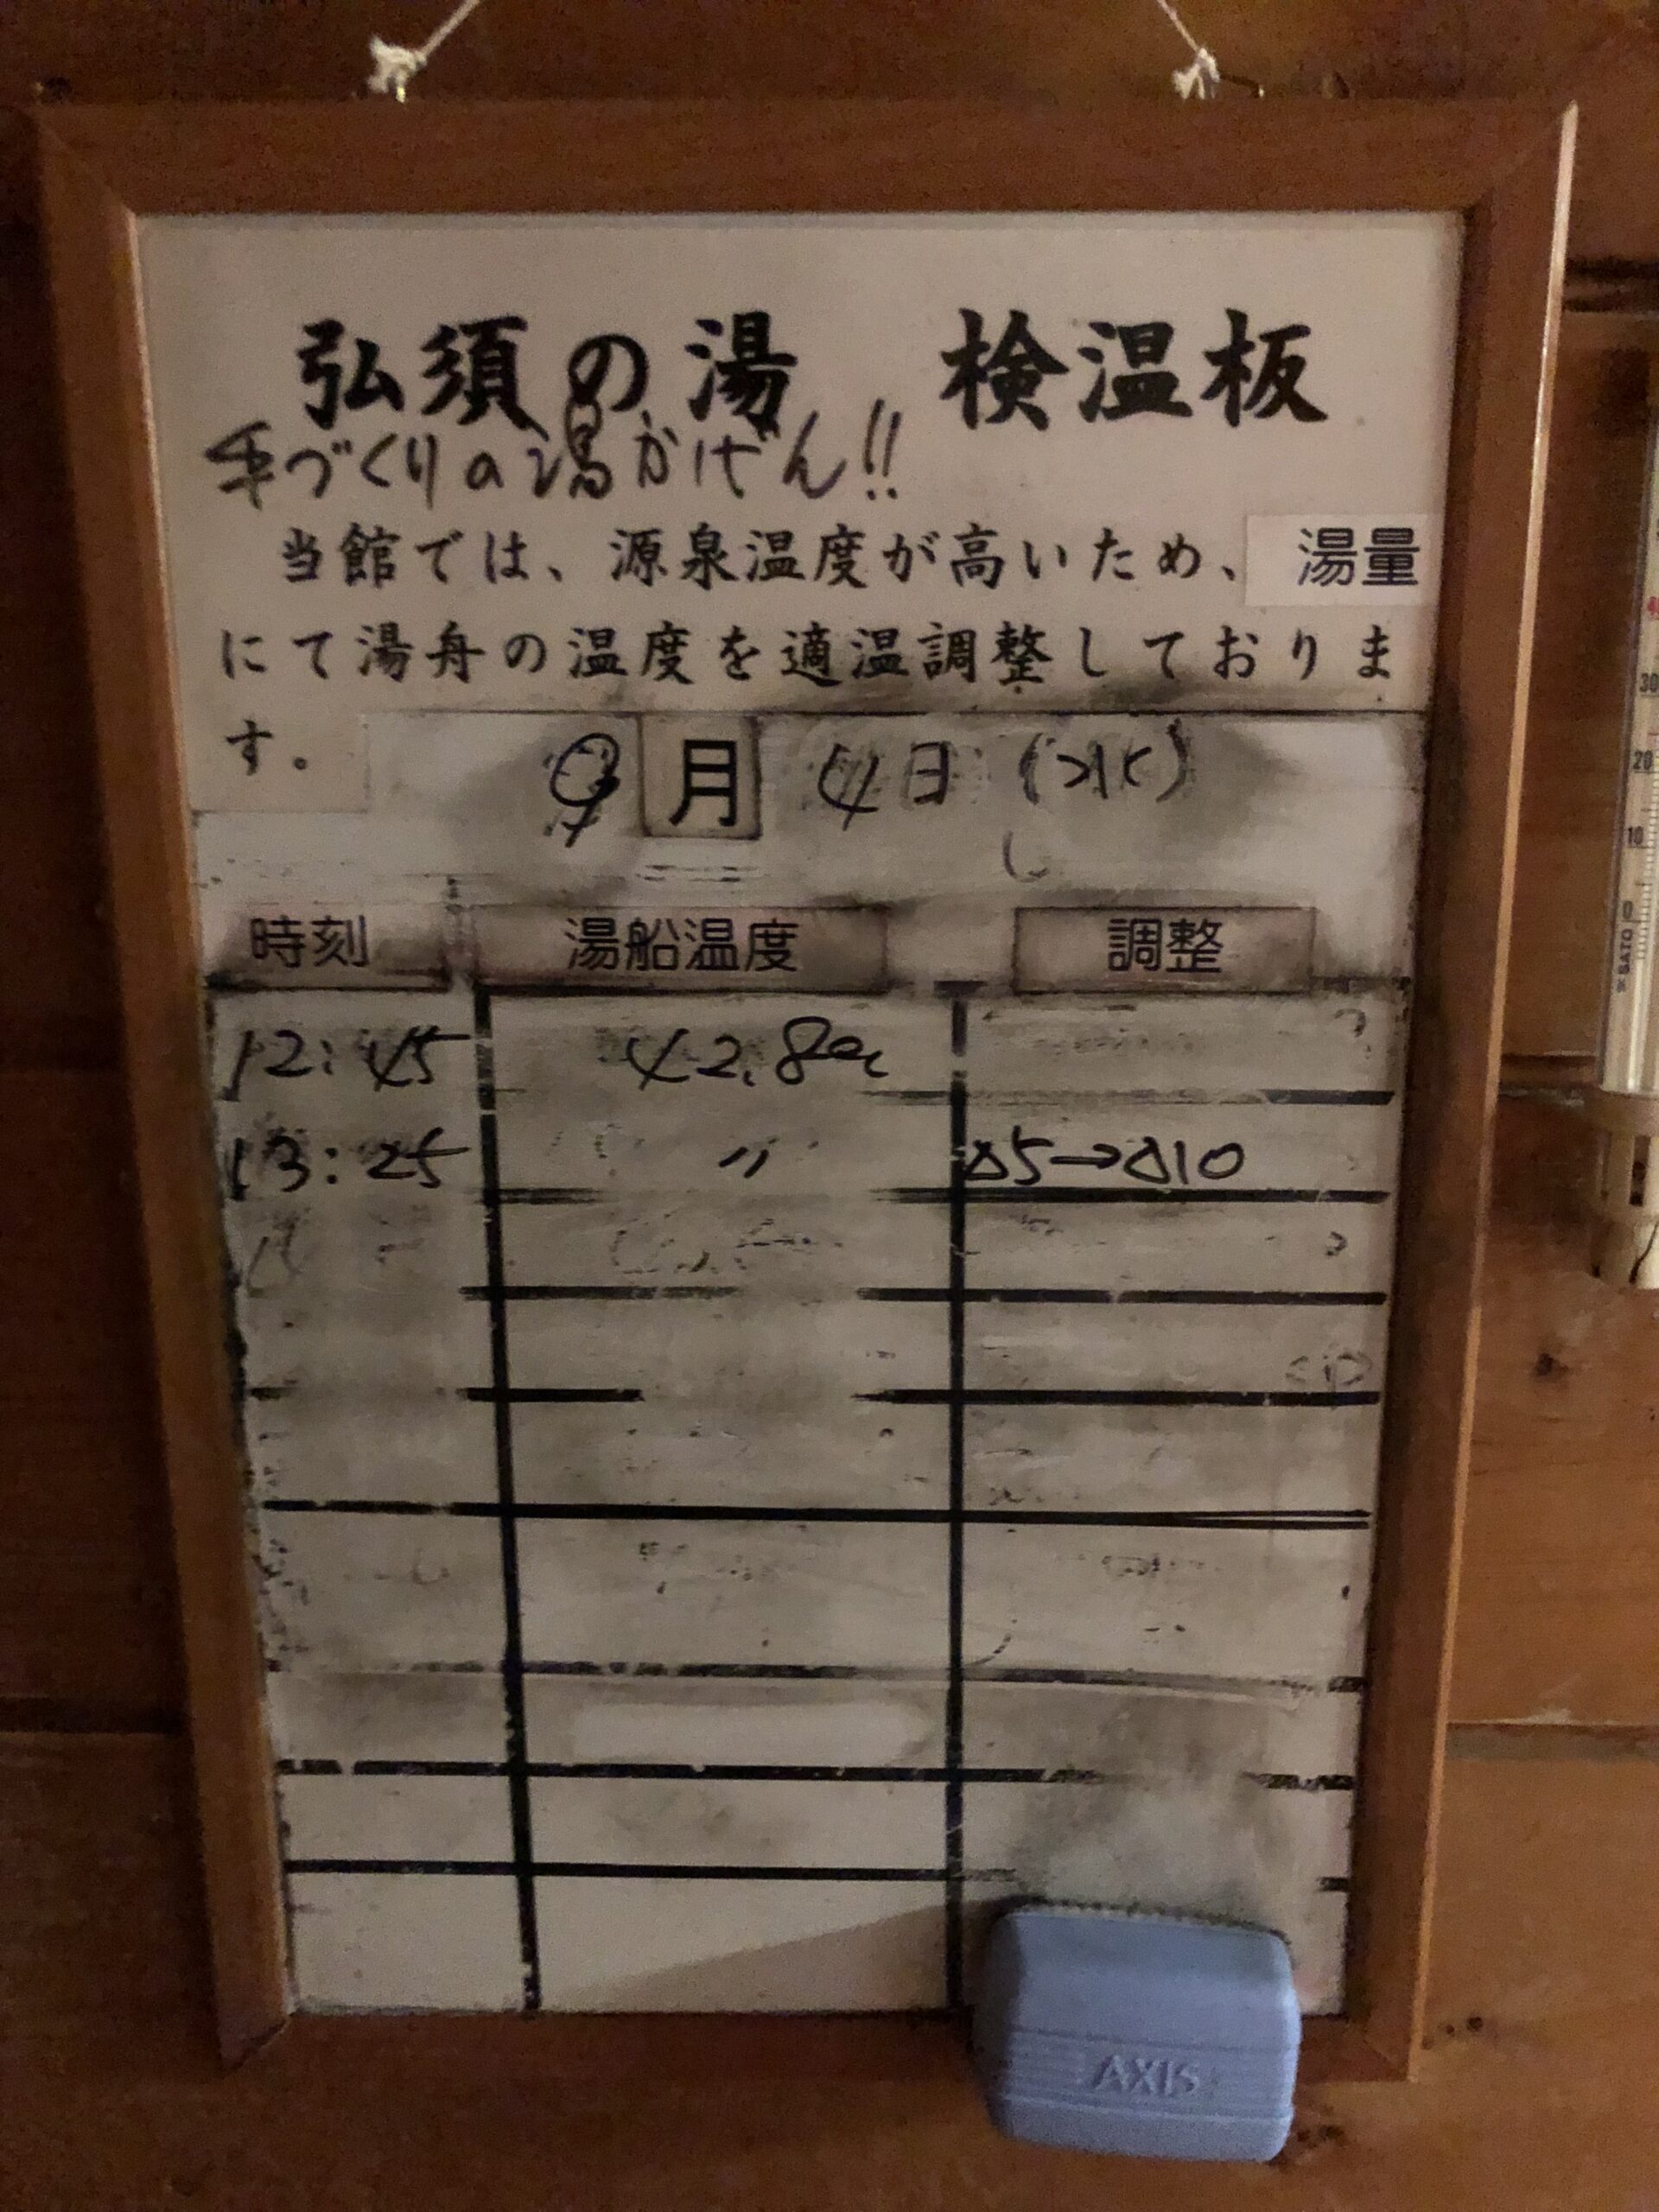 弘須の湯 検温板
手づくりの湯かげん!!
当館では、源泉温度が高いため、湯量
にて湯舟の温度を適温調整しておりま
す。
9月 4日 (水)
時刻 湯船温度 調整
12:45 42.8℃
13:25 〃 △5→△10
AXIS
SATO
30
20
10
0